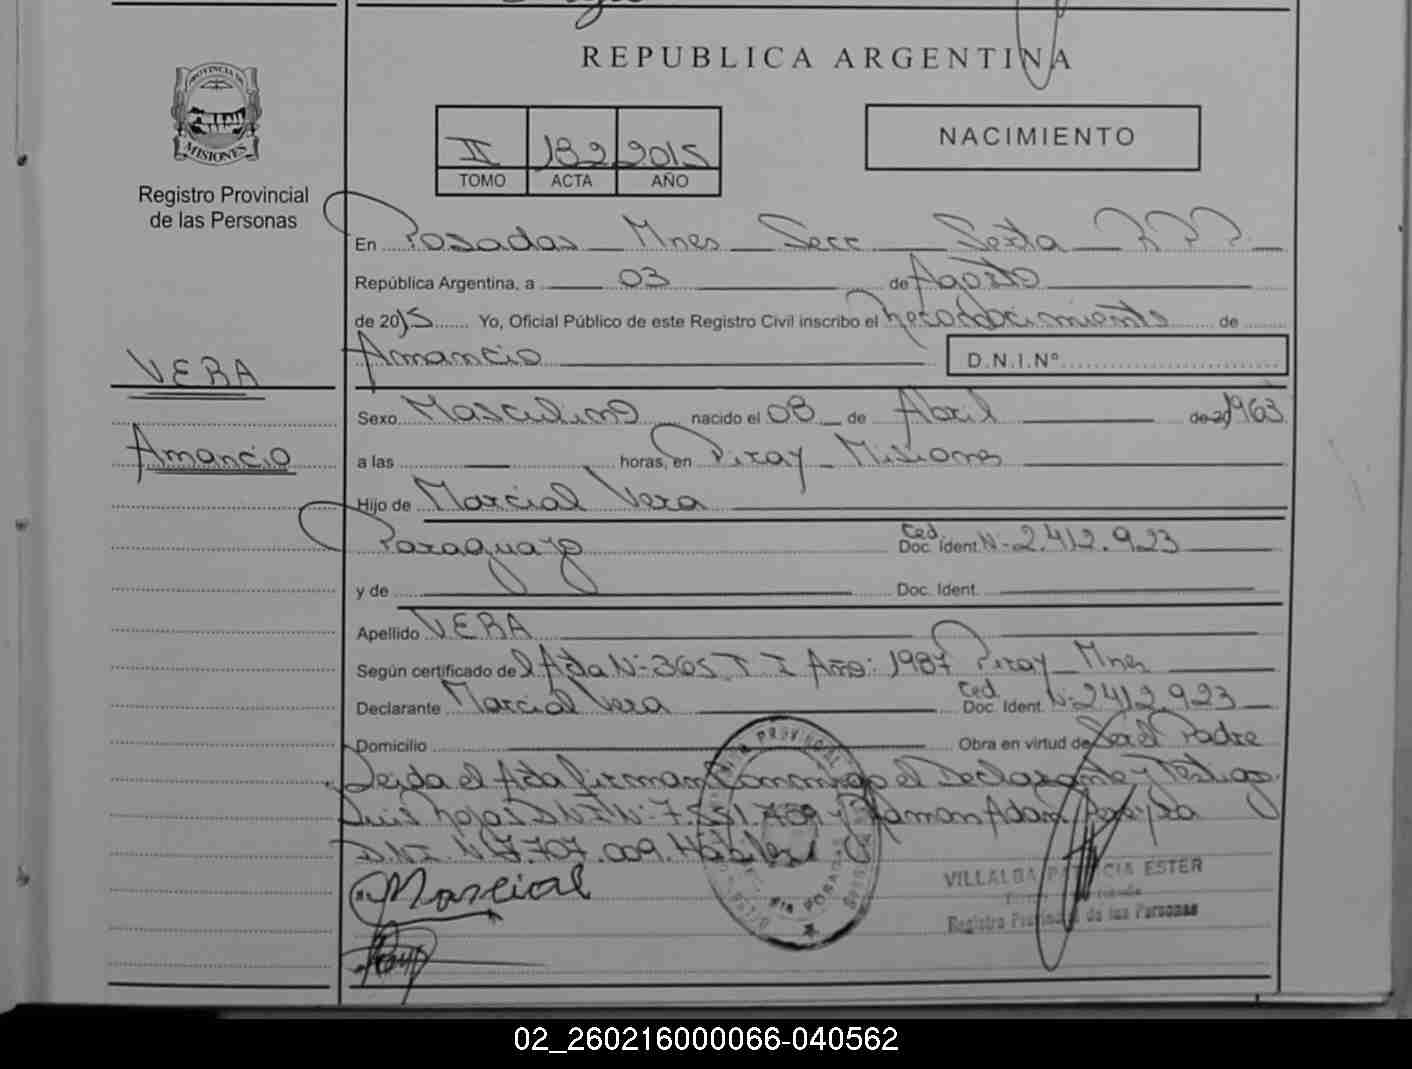 REPUBLICA ARGENTINA
PROVINCIA DE
MISIONES
Registro Provincial
de las Personas
II 182 2015
TOMO ACTA AÑO
NACIMIENTO
En Posadas Mnes Secc Sexta R.P.P.
República Argentina, a 03 de Agosto
de 2015 Yo, Oficial Público de este Registro Civil inscribo el Reconocimiento de
Amancio D.N.I.Nº
VERA
Amancio
Sexo Masculino nacido el 08 de Abril de 1963
a las horas, en Piray Misiones
Hijo de Marcial Vera
Paraguayo Ced. Doc. Ident N- 2.412.923
y de Doc. Ident.
Apellido VERA
Según certificado del Acta N- 365 T I Año: 1987 Piray Mnes
Declarante Marcial Vera Ced. Doc. Ident. N- 2412.923
Domicilio Obra en virtud de Ser el Padre
Leida el Acta firman conmigo el Declarante y Testigos
Luis Rojas DNI N- 7. y Ramon Adam
D.N.I. N 7.707.009. Hábiles
Marcial
VILLALBA PATRICIA ESTER
Registro Provincial de las Personas
02_260216000066-040562